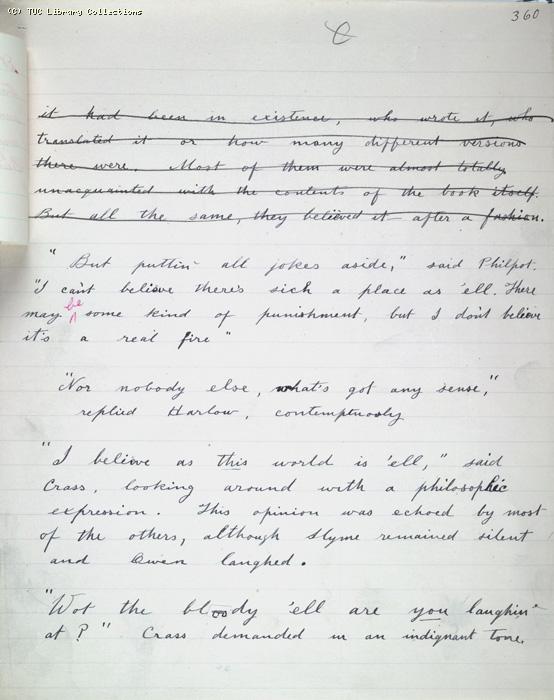 (C) TUC Library Collections
360
it had been in existence, who wrote it, who
translated it or how many different versions
there were. Most of them were almost totally
unacquainted with the contents of the book itself.
But all the same, they believed it after a fashion.
"But puttin' all jokes aside," said Philpot.
"I can't believe there's sich a place as 'ell. There
may be some kind of punishment, but I don't believe
it's a real fire"
"Nor nobody else, what's got any sense,"
replied Harlow, contemptuously
"I believe as this world is 'ell," said
Crass, looking around with a philosophic
expression. This opinion was echoed by most
of the others, although Slyme remained silent
and Owen laughed.
"Wot the bloody 'ell are you laughin'
at?" Crass demanded in an indignant tone.